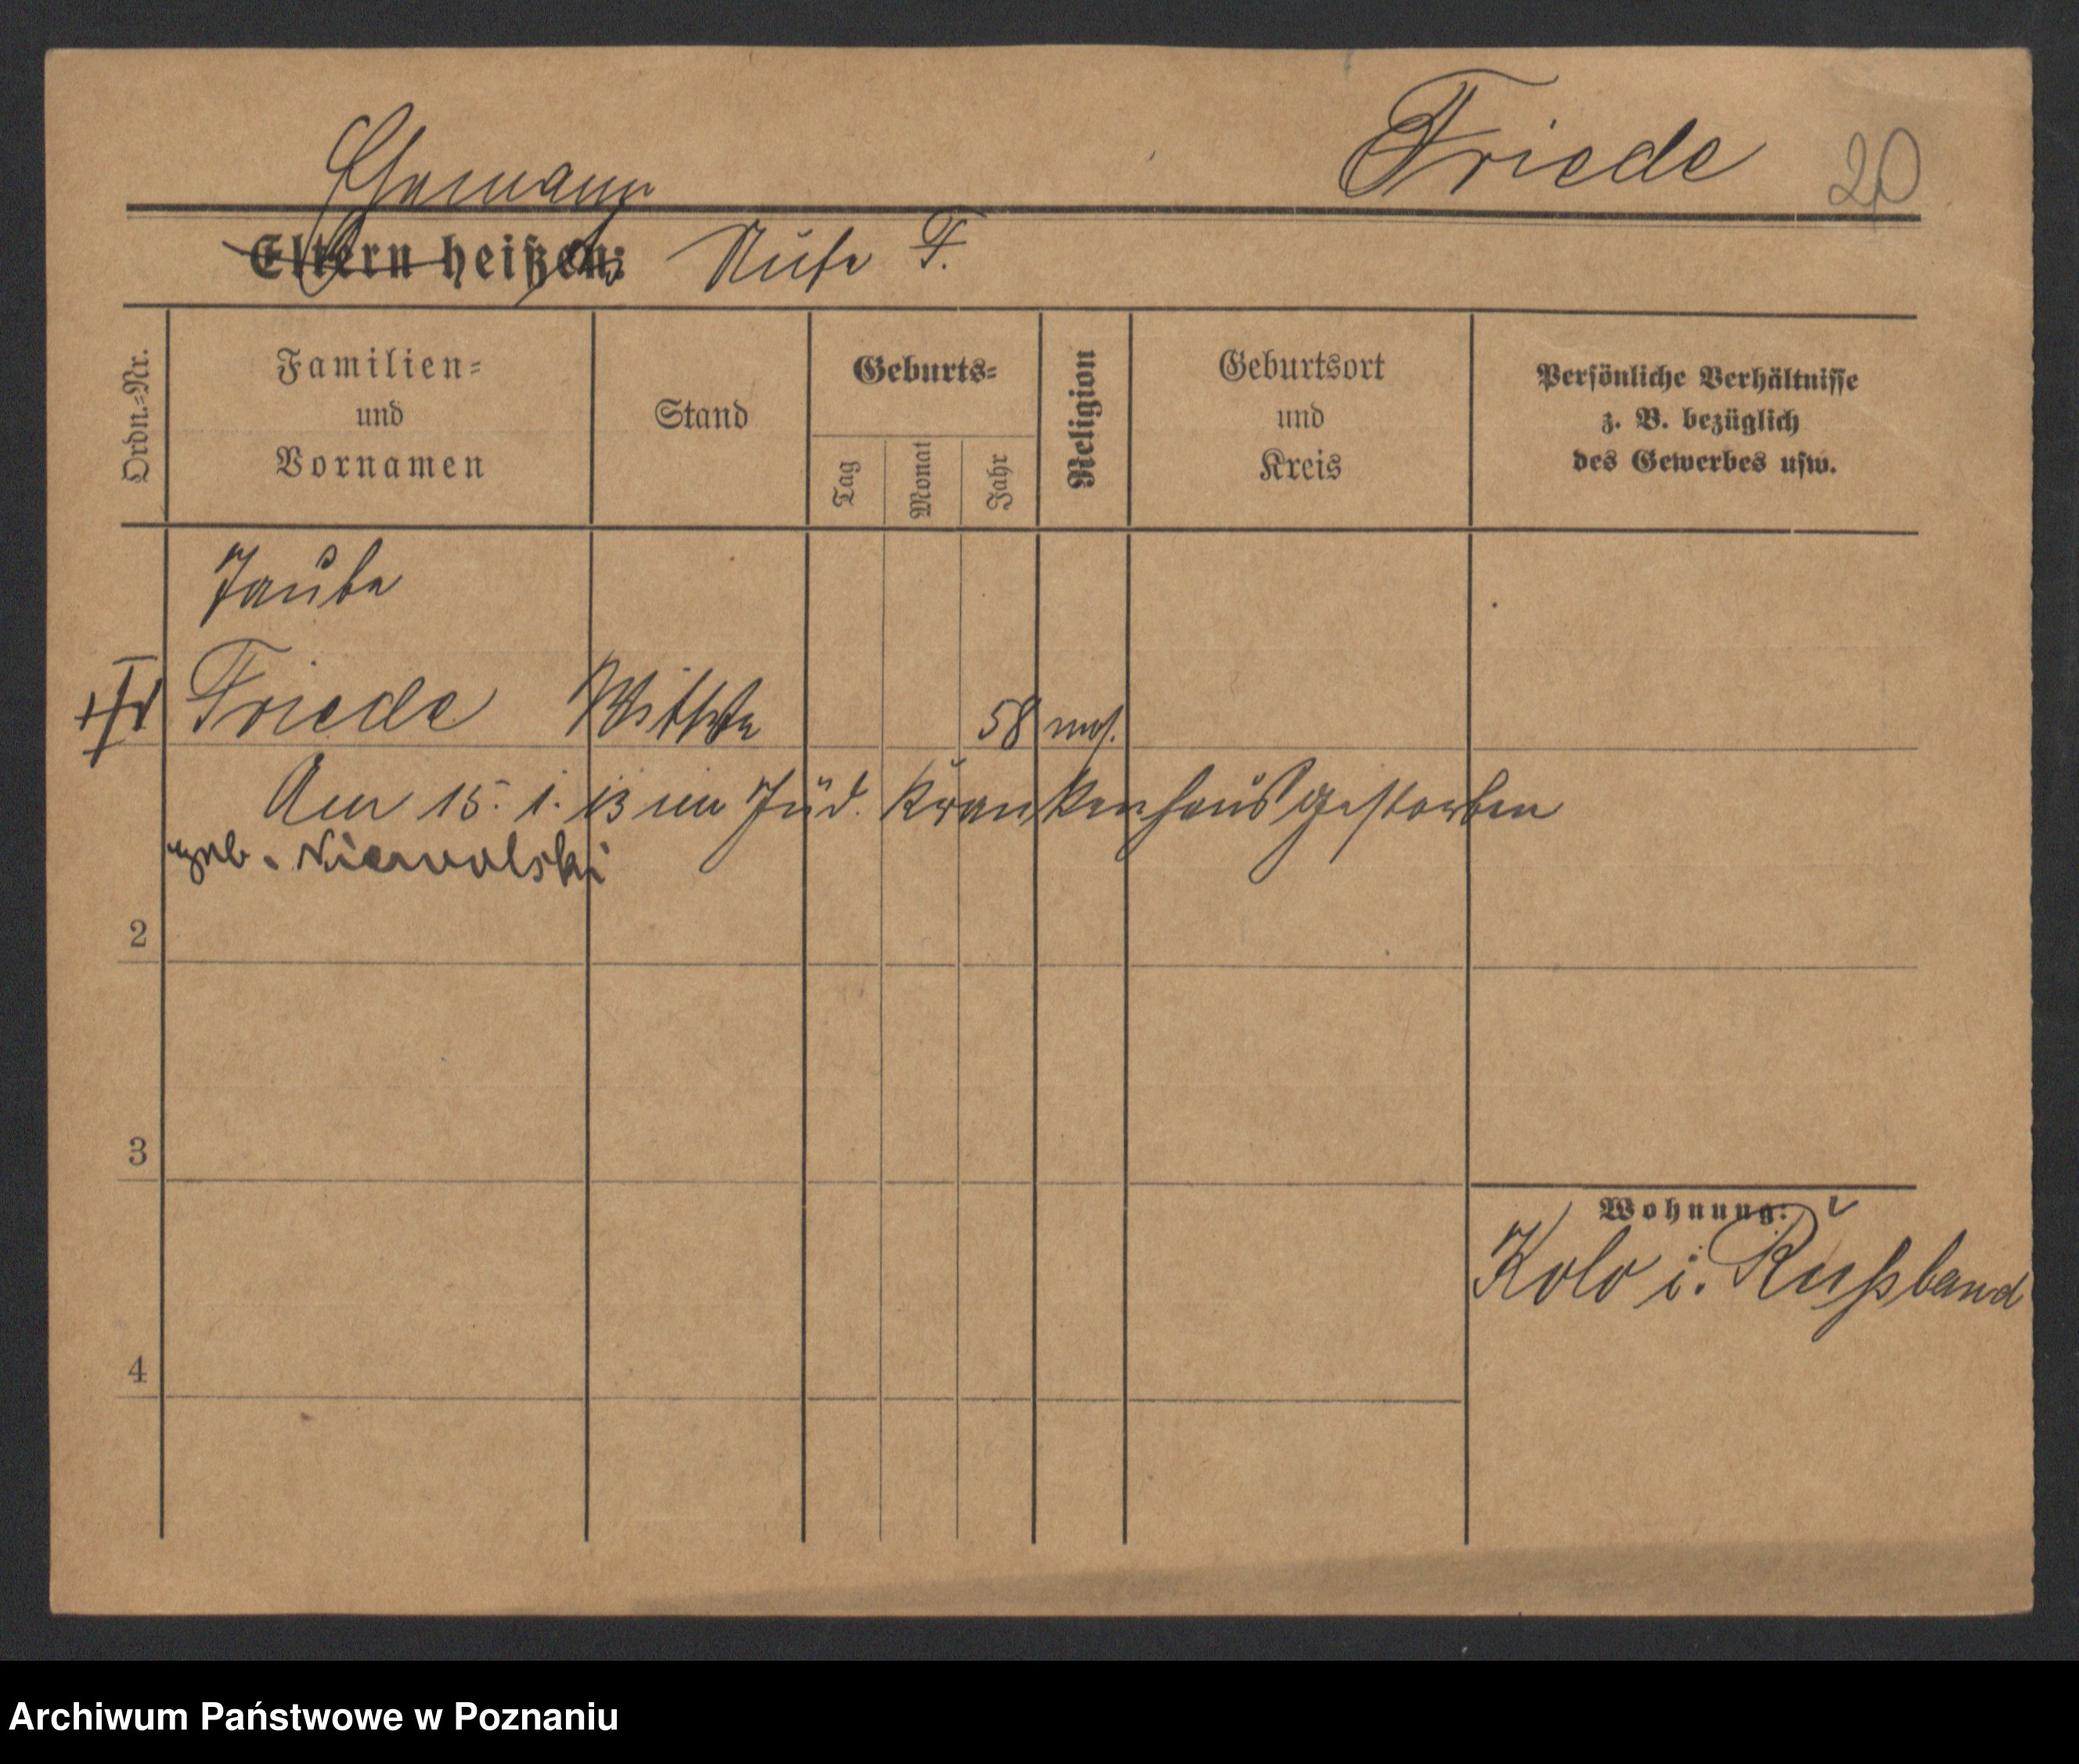 Friede 20
Ehemann
Eltern heißen: F.
Ordn.=Nr.
Familien=
und
Vornamen
Stand
Geburts=
Tag
Monat
Jahr
Religion
Geburtsort
und
Kreis
Persönliche Verhältnisse
z. B. bezüglich
des Gewerbes usw.
Taube
Friede Wittwe 58 mos.
Am 15. 1. 13 im Jüd. Krankenhaus gestorben
geb.
2
3
Wohnung:
Kolo i. Rußland
4
Archiwum Państwowe w Poznaniu